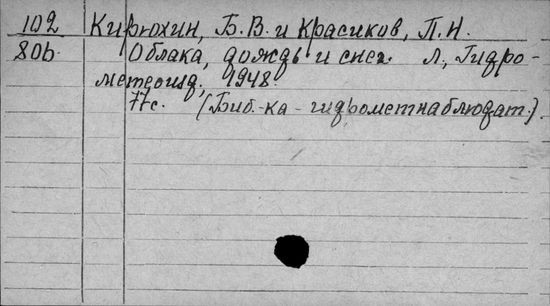 102 Кирюхин, Б. В. и Красиков, П. Н.
80б. Облака, дождь и снег. Л., Гидро-
метеоизд, 1948.
77с. (Биб-ка - гидрометнаблюдат.)